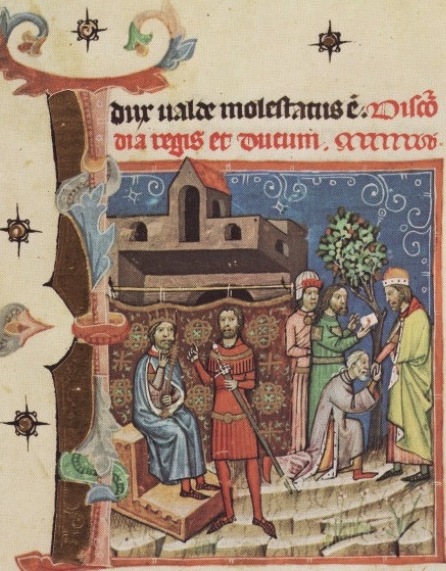 dux ualde molestatus ē. Discō
dia regis et Ducum.